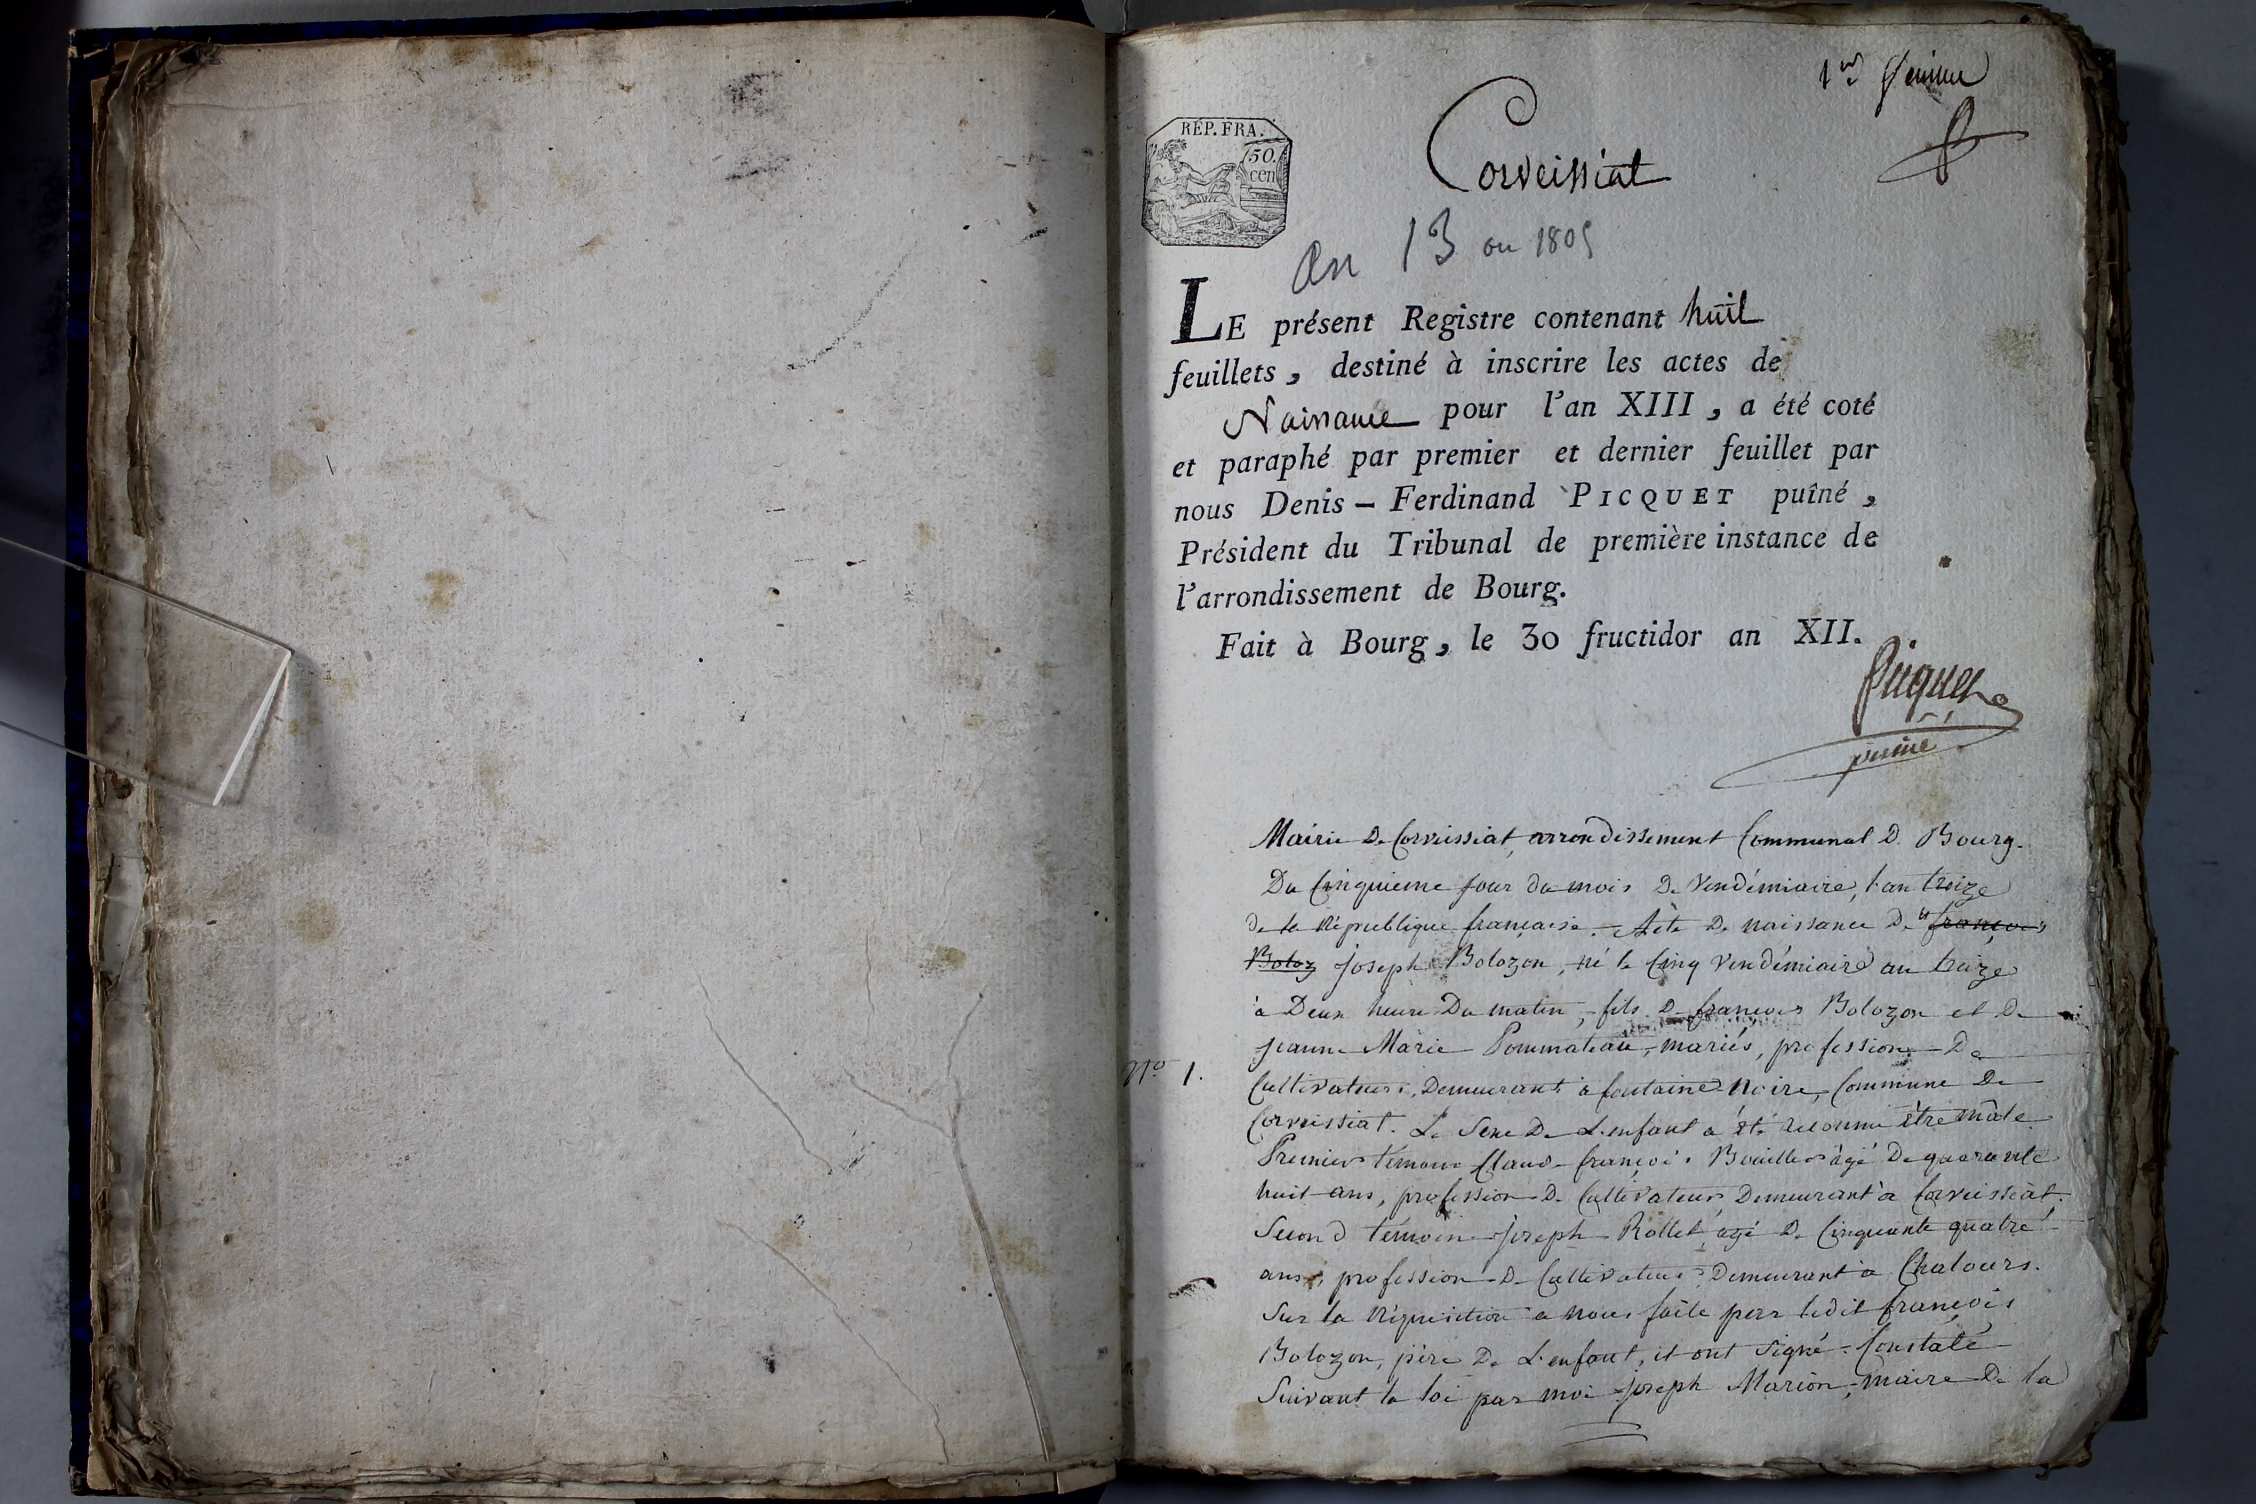 1er feuillet
REP. FRA.
50.
cen
Corveissiat
an 13 ou 1805
LE présent Registre contenant huit
feuillets, destiné à inscrire les actes de
Naissance pour l'an XIII, a été coté
et paraphé par premier et dernier feuillet par
nous Denis-Ferdinand PICQUET puîné,
Président du Tribunal de première instance de
l'arrondissement de Bourg.
Fait à Bourg, le 30 fructidor an XII.
Picquet
puiné
Mairie De Corveissiat, arrondissement Communal De Bourg.
Du Cinquieme jour du mois De Vendémiaire, l'an treize
De la République française. Acte De naissance De françois
Boloz joseph Bolozon, né le Cinq Vendémiaire an treize
à Deux heure Du matin, fils De françois Bolozon et De
jeanne Marie Pommateau, mariés, profession De
Nº 1.
Cultivateurs, Demeurant à fontaine Noire, Commune De
Corveissiat. Le Sexe De L'enfant a été reconnu être mâle.
Premier témoin Claude françois Bouiller âgé De quarante
huit ans, profession De Cultivateur Demeurant à Corveissiat.
Second témoin joseph Rollet âgé De Cinquante quatre
ans, profession De Cultivateur Demeurant à Chalours.
Sur la Réquisition à nous faite par ledit françois
Bolozon, père De L'enfant, et ont Signé. Constaté
Suivant la loi par moi joseph Marion, maire De la